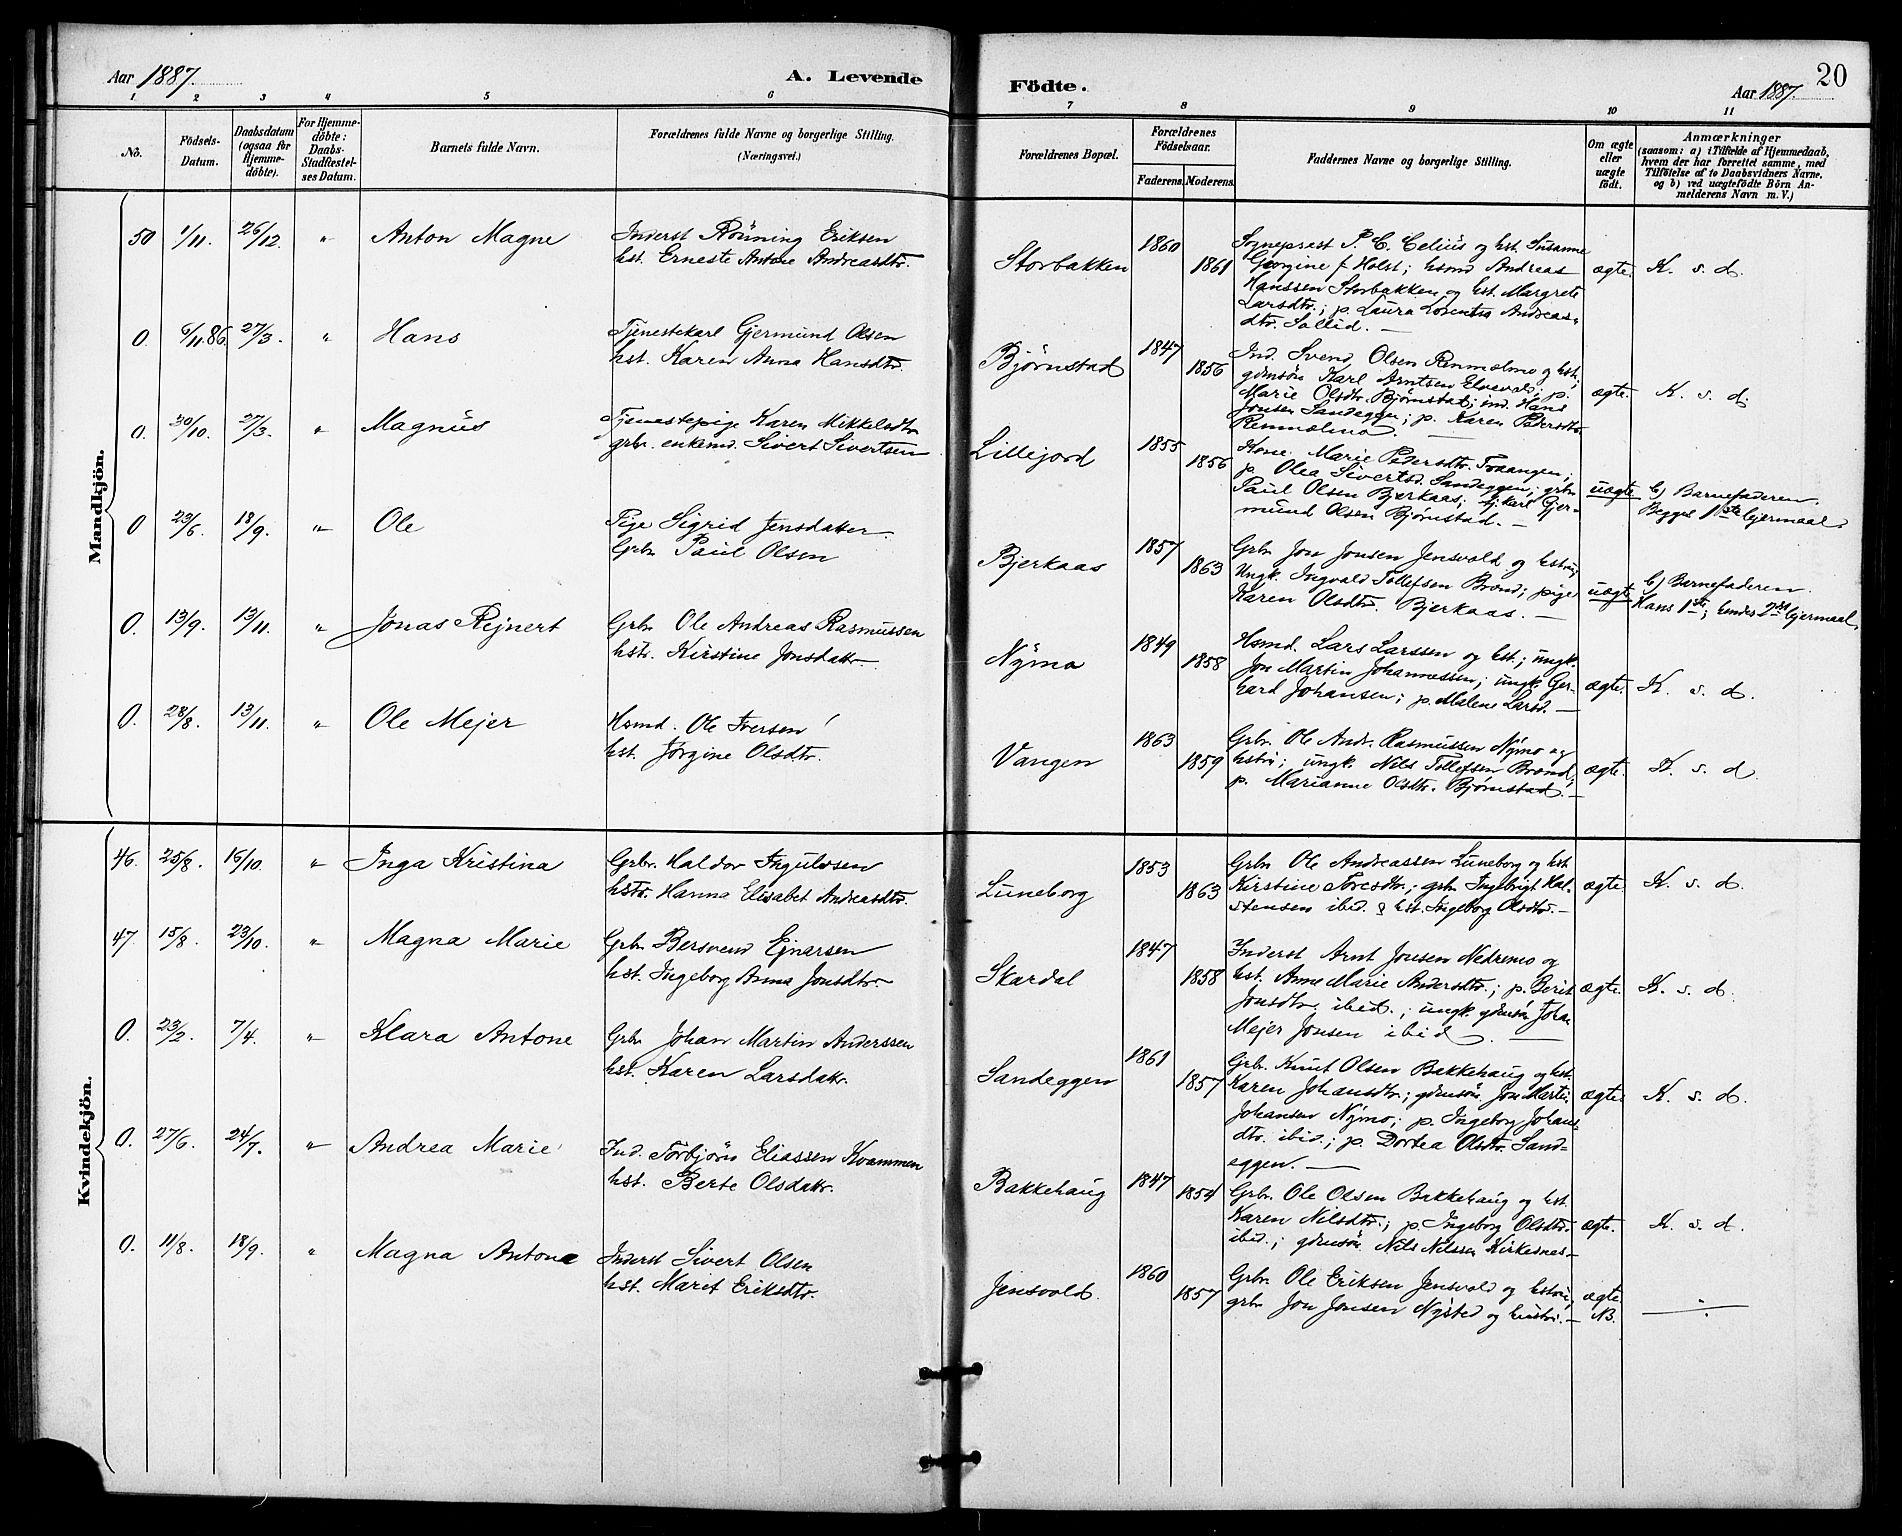 Aar 1887.
A. Levende
1 2 3 4 5 6
No.
Födsels-
Datum.
Daabsdatum
(ogsaa for
Hjemme-
döbte).
For Hjemme-
döbte:
Daabs-
Stadfæstel-
ses Datum.
Barnets fulde Navn.
Forældrenes fulde Navne og borgerlige Stilling.
(Næringsvei.)
Mandkjön.
50 1/11. 26/12. " Anton Magne Inderst Rönning Eriksen
hst. Erneste Antone Andreasdtr.
0. 6/11 86. 27/3. " Hans Tjenestekarl Gjermund Olsen
hst. Karen Anna Hansdtr.
0. 30/10. 27/3. " Magnus Tjenestepige Karen Mikkelsdtr
grbr. enkemd. Sivert Sivertsen
0 23/6. 18/9. " Ole Pige Sigrid Jensdatter
Grbr Paul Olsen
0. 13/9. 13/11. " Jonas Rejnert Grbr. Ole Andreas Rasmussen
hstr. Kirstine Jonsdatr.
0. 28/8. 13/11. " Ole Mejer Hsmd. Ole Iversen
hst. Jörgine Olsdtr.
Kvindekjön.
46. 25/8. 16/10. " Inga Kristina Grbr. Haldor Ingulvsen
hstr. Hanna Elisabet Andreasdtr.
47. 15/8. 23/10. " Magna Marie Grbr Bersvend Ejnarsen
hst. Ingeborg Anna Jonsdtr.
0. 23/2. 7/4. " Klara Antone Grbr Johan Martin Anderssen
hst. Karen Larsdatr.
0. 27/6. 24/7. " Andrea Marie Ind. Torbjörn Eliassen Kvammen
hst. Berte Olsdatr.
0. 11/8. 18/9. " Magna Antone Inderst Sivert Olsen
hst. Marit Eriksdtr.
Födte.
Aar 1887.
20
7 8 9 10 11
Forældrenes Bopæl.
Forældrenes
Födselsaar.
Faderens. Moderens.
Faddernes Navne og borgerlige Stilling.
Om ægte
eller
uægte
födt.
Anmærkninger
(saasom: a) i Tilfælde af Hjemmedaab,
hvem der har forrettet samme, med
Tilföielse af to Daabsvidners Navne,
og b) ved uægtefödte Börn An-
melderens Navn m. V.)
Storbakken 1860 1861 Sogneprest P. C. Celius og hst. Susanne
Georgine f. Holst; hsmd Andreas
Hanssen Storbakken og hst. Margrete
Larsdtr.; p. Laura Lorentse Andreas-
dtr. Sollid. —
ægte. K. s. d.
Bjørnstad 1847 1856 Ind. Svend Olsen Renmolmo og hst.;
gdmsön Karl Arntsen Elvevold; p.
Marie Olsdtr. Bjørnstad; ind. Hans
Jonsen Sandeggen; p. Karen Pedersdtr.
Renmolmo. —
ægte. K. s. d.
Lillejord 1855 1856 Kone Marie Pedersdtr. Tvaangen;
p. Olea Sivertsd. Sandeggen; grbr.
Paul Olsen Bjerkaas; tj.karl Gjer-
mund Olsen Bjørnstad. —
uægte b) Barnefaderen
Begges 1ste lejermaal
Bjerkaas 1857 1863 Grbr Jon Jonsen Jensvold og hstru;
Ungk. Ingvald Tollefsen Brænd; pige
Karen Olsdtr. Bjerkaas. —
uægt. b) Barnefaderen.
Hans 1ste; hendes 2det lejermaal.
Nÿmo 1849 1858 Hsmd. Lars Larssen og hst.; ungk.
Jon Martin Johannessen; ungk. Ger-
hard Johansen; p. Malene Larsd. —
ægte. K. s. d.
Vangen 1863 1859 Grbr. Ole Andr. Rasmussen Nÿmo og
hstr.; ungk. Nils Tollefsen Brænd;
p. Marianne Olsdtr. Bjørnstad. —
ægte. K. s. d.
Luneborg 1853 1863 Grbr Ole Andreassen Luneborg og hst
Kirstine Toresdtr.; grbr Ingebrigt Hal-
stensen ibid. & hst. Ingeborg Olsdtr. —
ægte. K. s. d.
Skardal 1847 1858 Inderst Arnt Jonsen Nedremo og
hst. Anne Marie Andersdtr.; p. Berit
Jonsdtr. ibid.; ungk. gdmsön Johan
Mejer Jonsen ibid. —
ægte. K. s. d.
Sandeggen 1861 1857 Grbr. Knut Olsen Bakkehaug og hst.
Karen Johansdtr.; gdmsön Jon Martin
Johansen Nÿmo; p. Ingeborg Johans-
dtr. ibid.; p. Dortea Olsdtr. Sand-
eggen. —
ægte. K. s. d.
Bakkehaug 1847 1854 Grbr. Ole Olsen Bakkehaug og hst.
Karen Nilsdtr.; p. Ingeborg Olsdtr.
ibid.; gdmsön Nils Nilssen Kirkesnes —
ægte. K. s. d.
Jensvold. 1860 1857 Grbr. Ole Eriksen Jensvold og hstru;
grbr Jon Jonsen Nÿsted og hustru. —
ægte
NB.